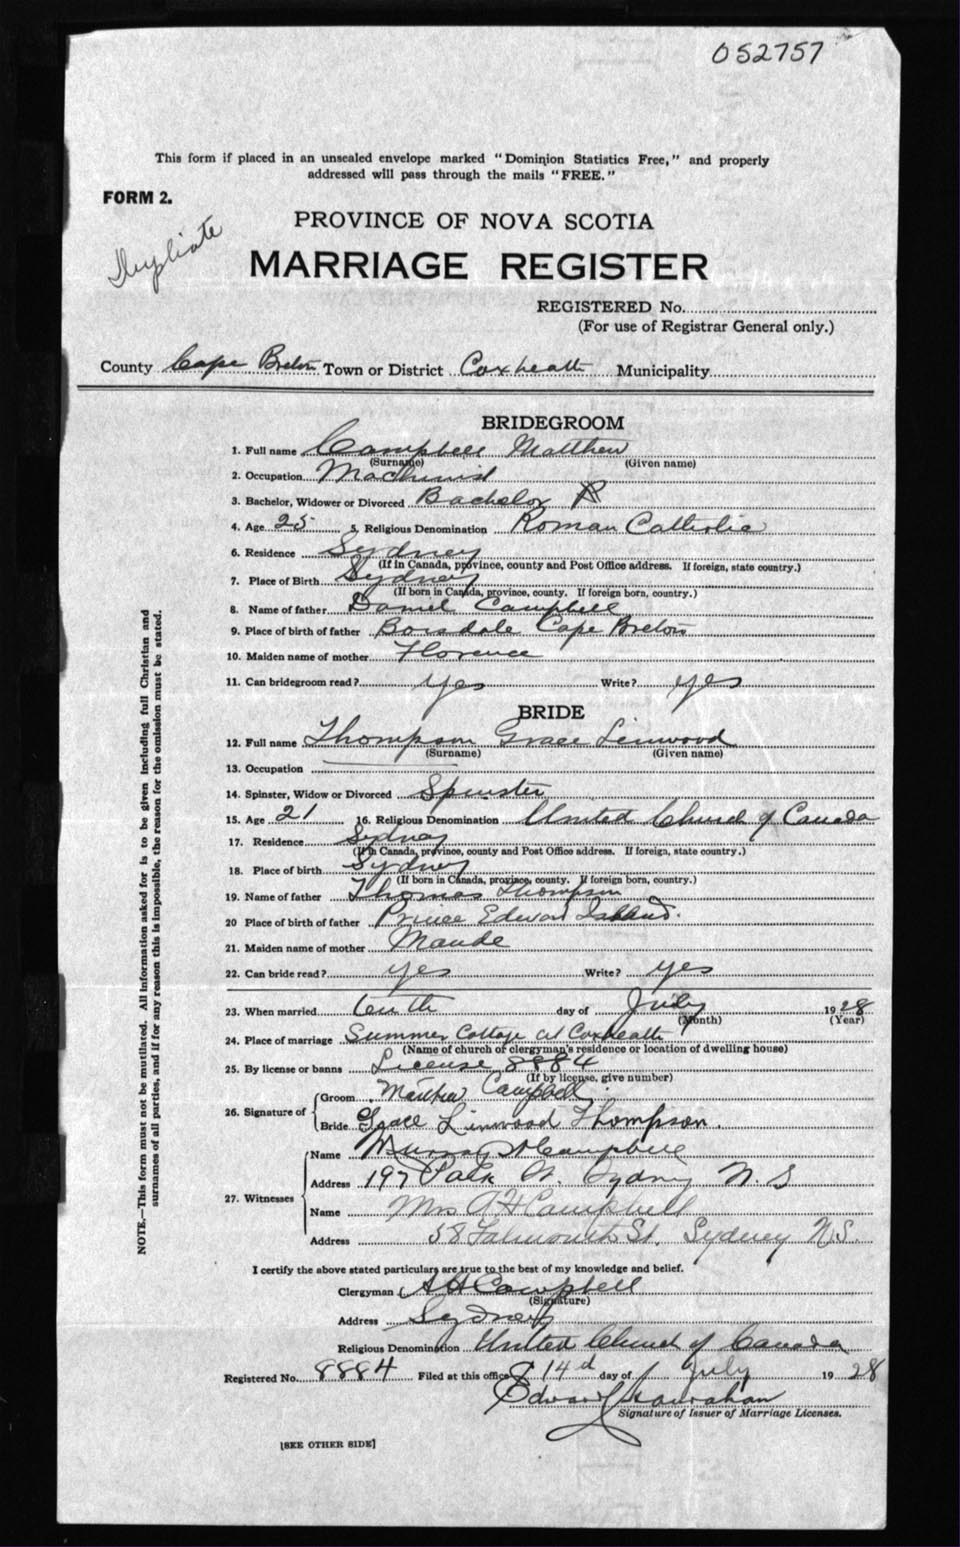 052757
This form if placed in an unsealed envelope marked "Dominion Statistics Free," and properly
addressed will pass through the mails "FREE."
FORM 2.
Duplicate
PROVINCE OF NOVA SCOTIA
MARRIAGE REGISTER
REGISTERED No.
(For use of Registrar General only.)
County Cape Breton Town or District Coxheath Municipality
BRIDEGROOM
1. Full name Campbell Matthew
(Surname) (Given name)
2. Occupation Machinist
3. Bachelor, Widower or Divorced Bachelor
4. Age 25 5. Religious Denomination Roman Catholic
6. Residence Sydney
(If in Canada, province, county and Post Office address. If foreign, state country.)
7. Place of Birth Sydney
(If born in Canada, province, county. If foreign born, country.)
8. Name of father Daniel Campbell
9. Place of birth of father Boisdale Cape Breton
10. Maiden name of mother Florence
11. Can bridegroom read? yes Write? yes
BRIDE
12. Full name Thompson Grace Linwood
(Surname) (Given name)
13. Occupation
14. Spinster, Widow or Divorced Spinster
15. Age 21 16. Religious Denomination United Church of Canada
17. Residence Sydney
(If in Canada, province, county and Post Office address. If foreign, state country.)
18. Place of birth Sydney
(If born in Canada, province, county. If foreign born, country.)
19. Name of father Thomas Thompson
20 Place of birth of father Prince Edward Island.
21. Maiden name of mother Maude
22. Can bride read? yes Write? yes
23. When married tenth day of July 1928
(Month) (Year)
24. Place of marriage Summer Cottage at Coxheath
(Name of church or clergyman's residence or location of dwelling house)
25. By license or banns License 8884
(If by license, give number)
26. Signature of
Groom Matthew Campbell
Bride Grace Linwood Thompson.
27. Witnesses
Name Murray Campbell
Address 197 Park St. Sydney N.S
Name Mrs A H Campbell
Address 58 Falmouth St. Sydney N.S.
I certify the above stated particulars are true to the best of my knowledge and belief.
Clergyman A H Campbell
(Signature)
Address Sydney
Religious Denomination United Church of Canada
Registered No. 8884 Filed at this office 14d day of July 1928
Edward Hanrahan
Signature of Issuer of Marriage Licenses.
[SEE OTHER SIDE]
NOTE.—This form must not be mutilated. All information asked for is to be given including full Christian and
surnames of all parties, and if for any reason this is impossible, the reason for the omission must be stated.